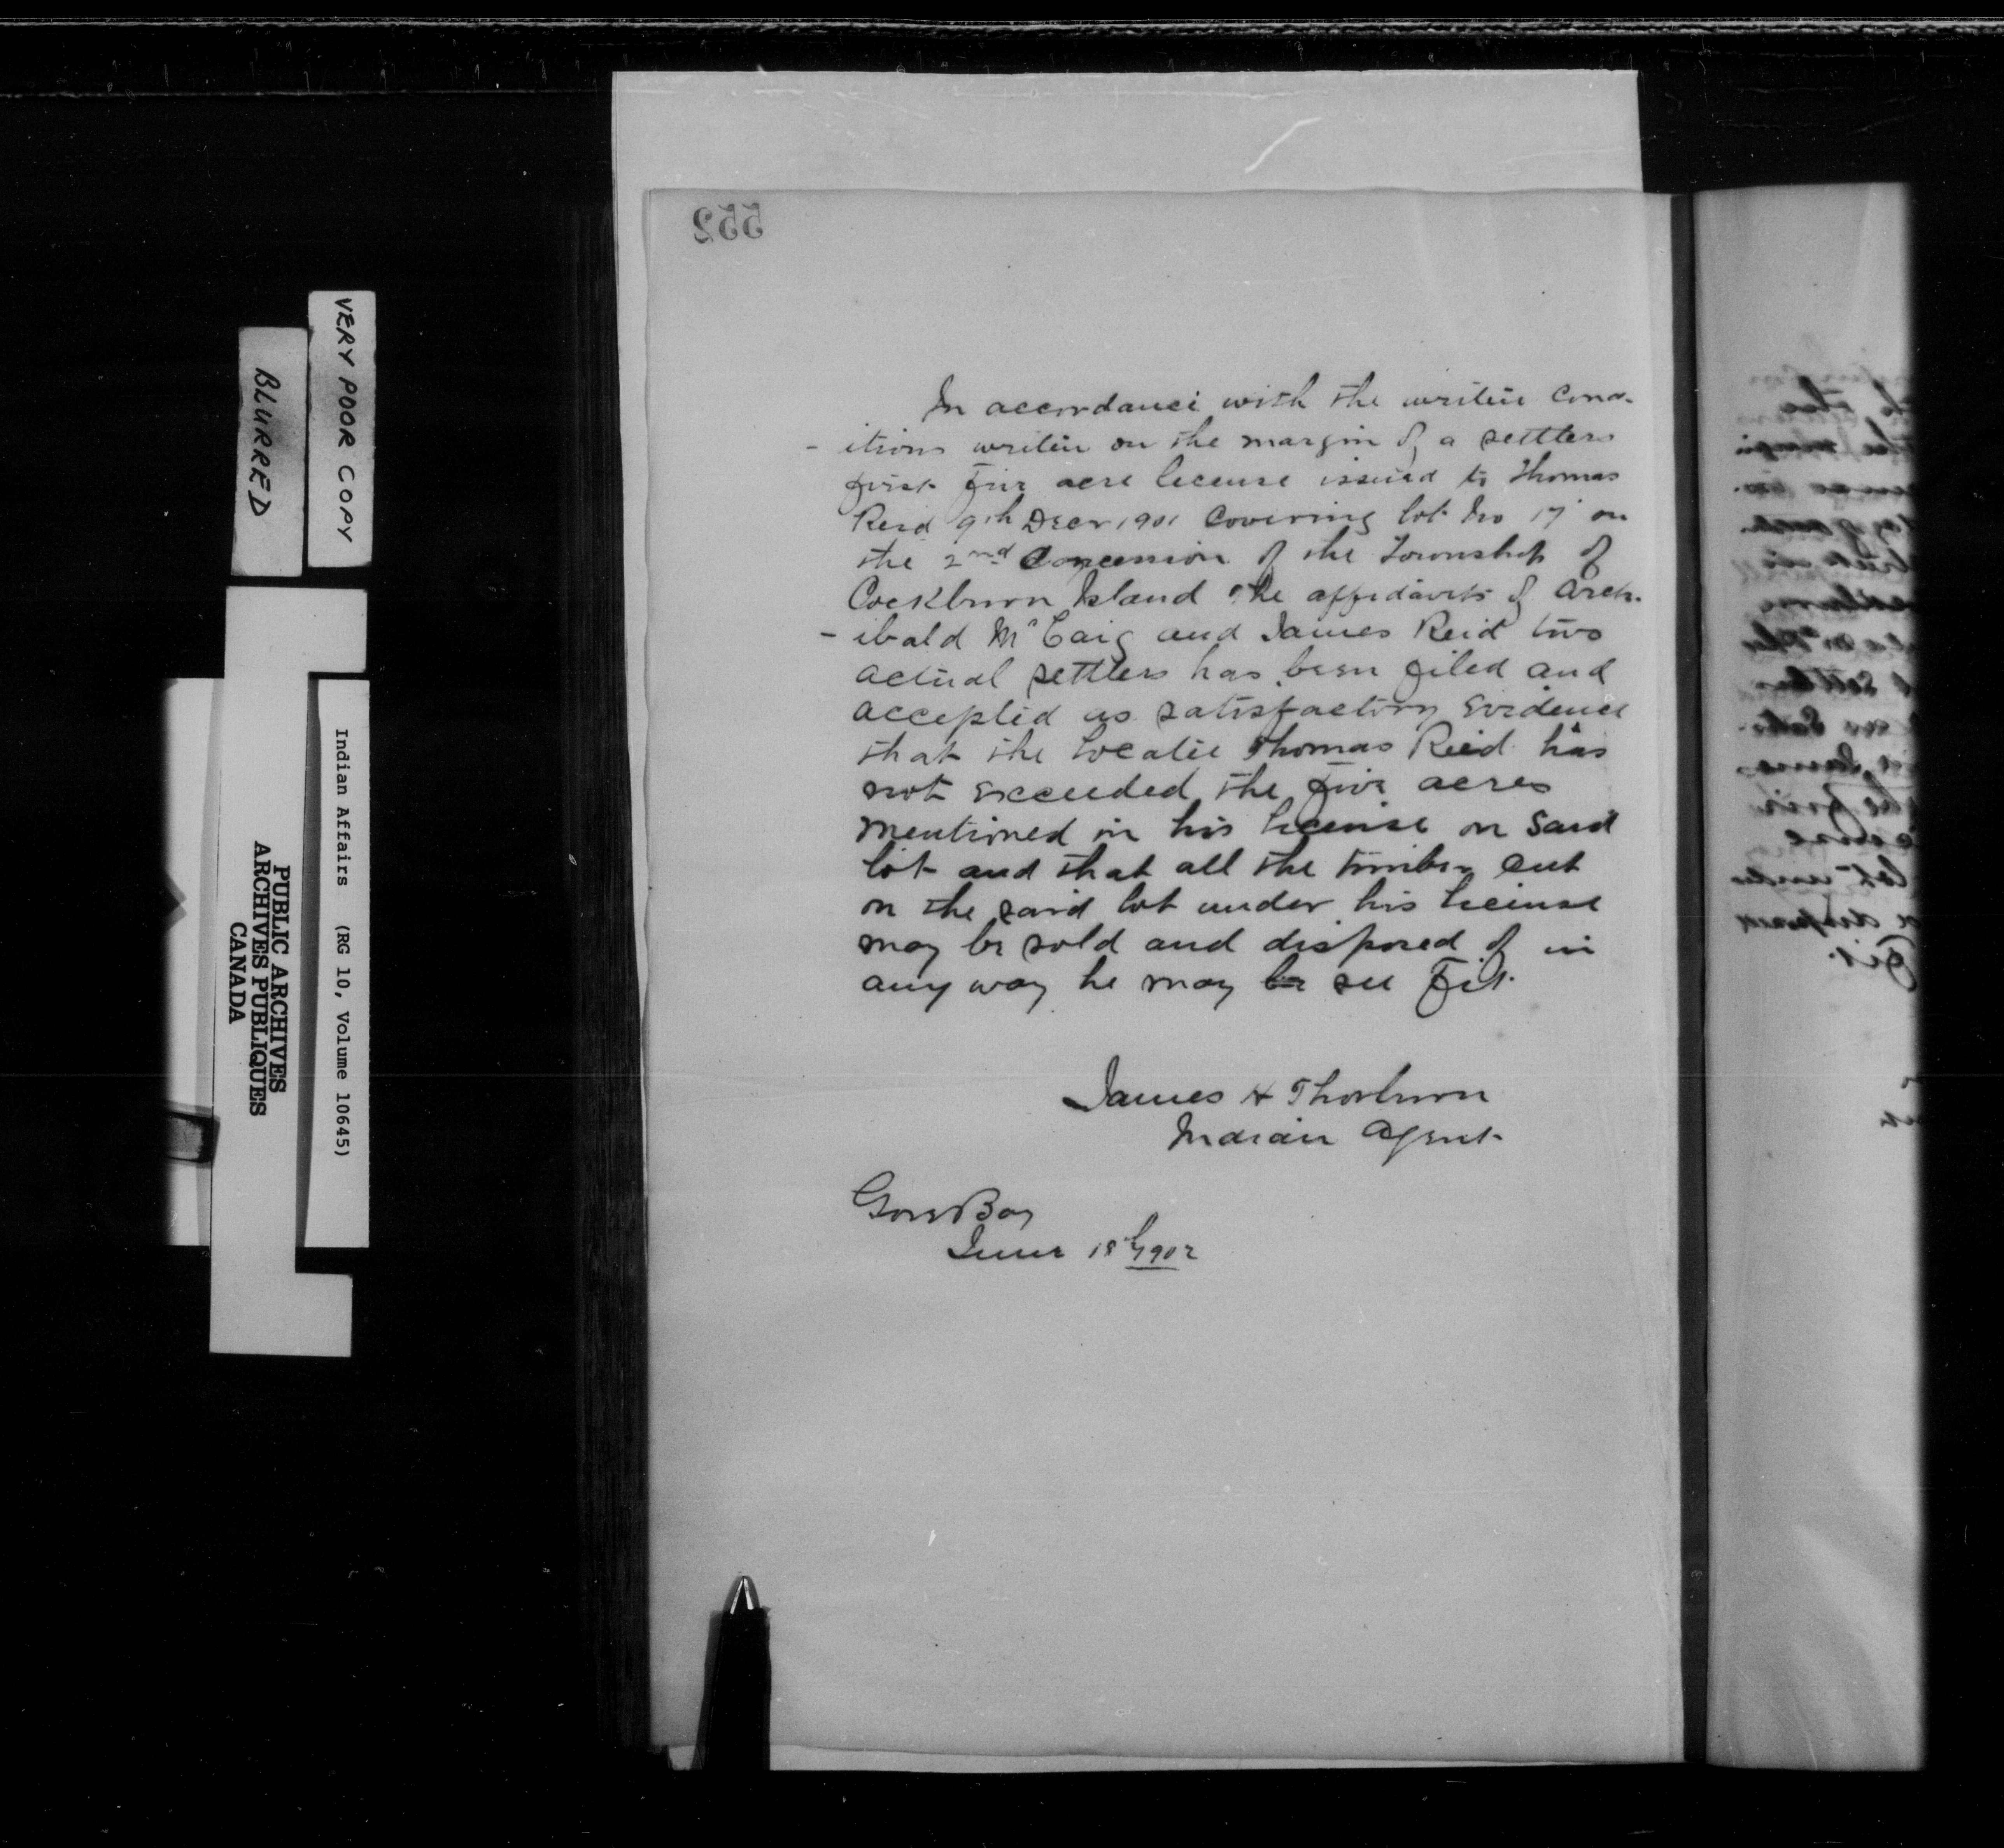 552
In accordance with the writtin Cond-
- itions writtin on the margin of a settlers
first five acre license issued to Thomas
Reid 9th Decr 1901 Covering lot No 17 on
the 2nd Concession of the Township of
Cockburn Island the affidavits of Arch-
- ibald McCaig and James Reid two
actual settlers has been filed and
accepted as satisfactory Evidence
that the locatee Thomas Reid has
not Exceeded the five acres
mentioned in his license on said
lot and that all the timber Cut
on the said lot under his license
may be sold and disposed of in
any way he may be see Fit.
James H Thorburn
Indian Agent
Gore Bay
June 18th 1902
VERY POOR COPY
BLURRED
Indian Affairs (RG 10, Volume 10645)
PUBLIC ARCHIVES
ARCHIVES PUBLIQUES
CANADA